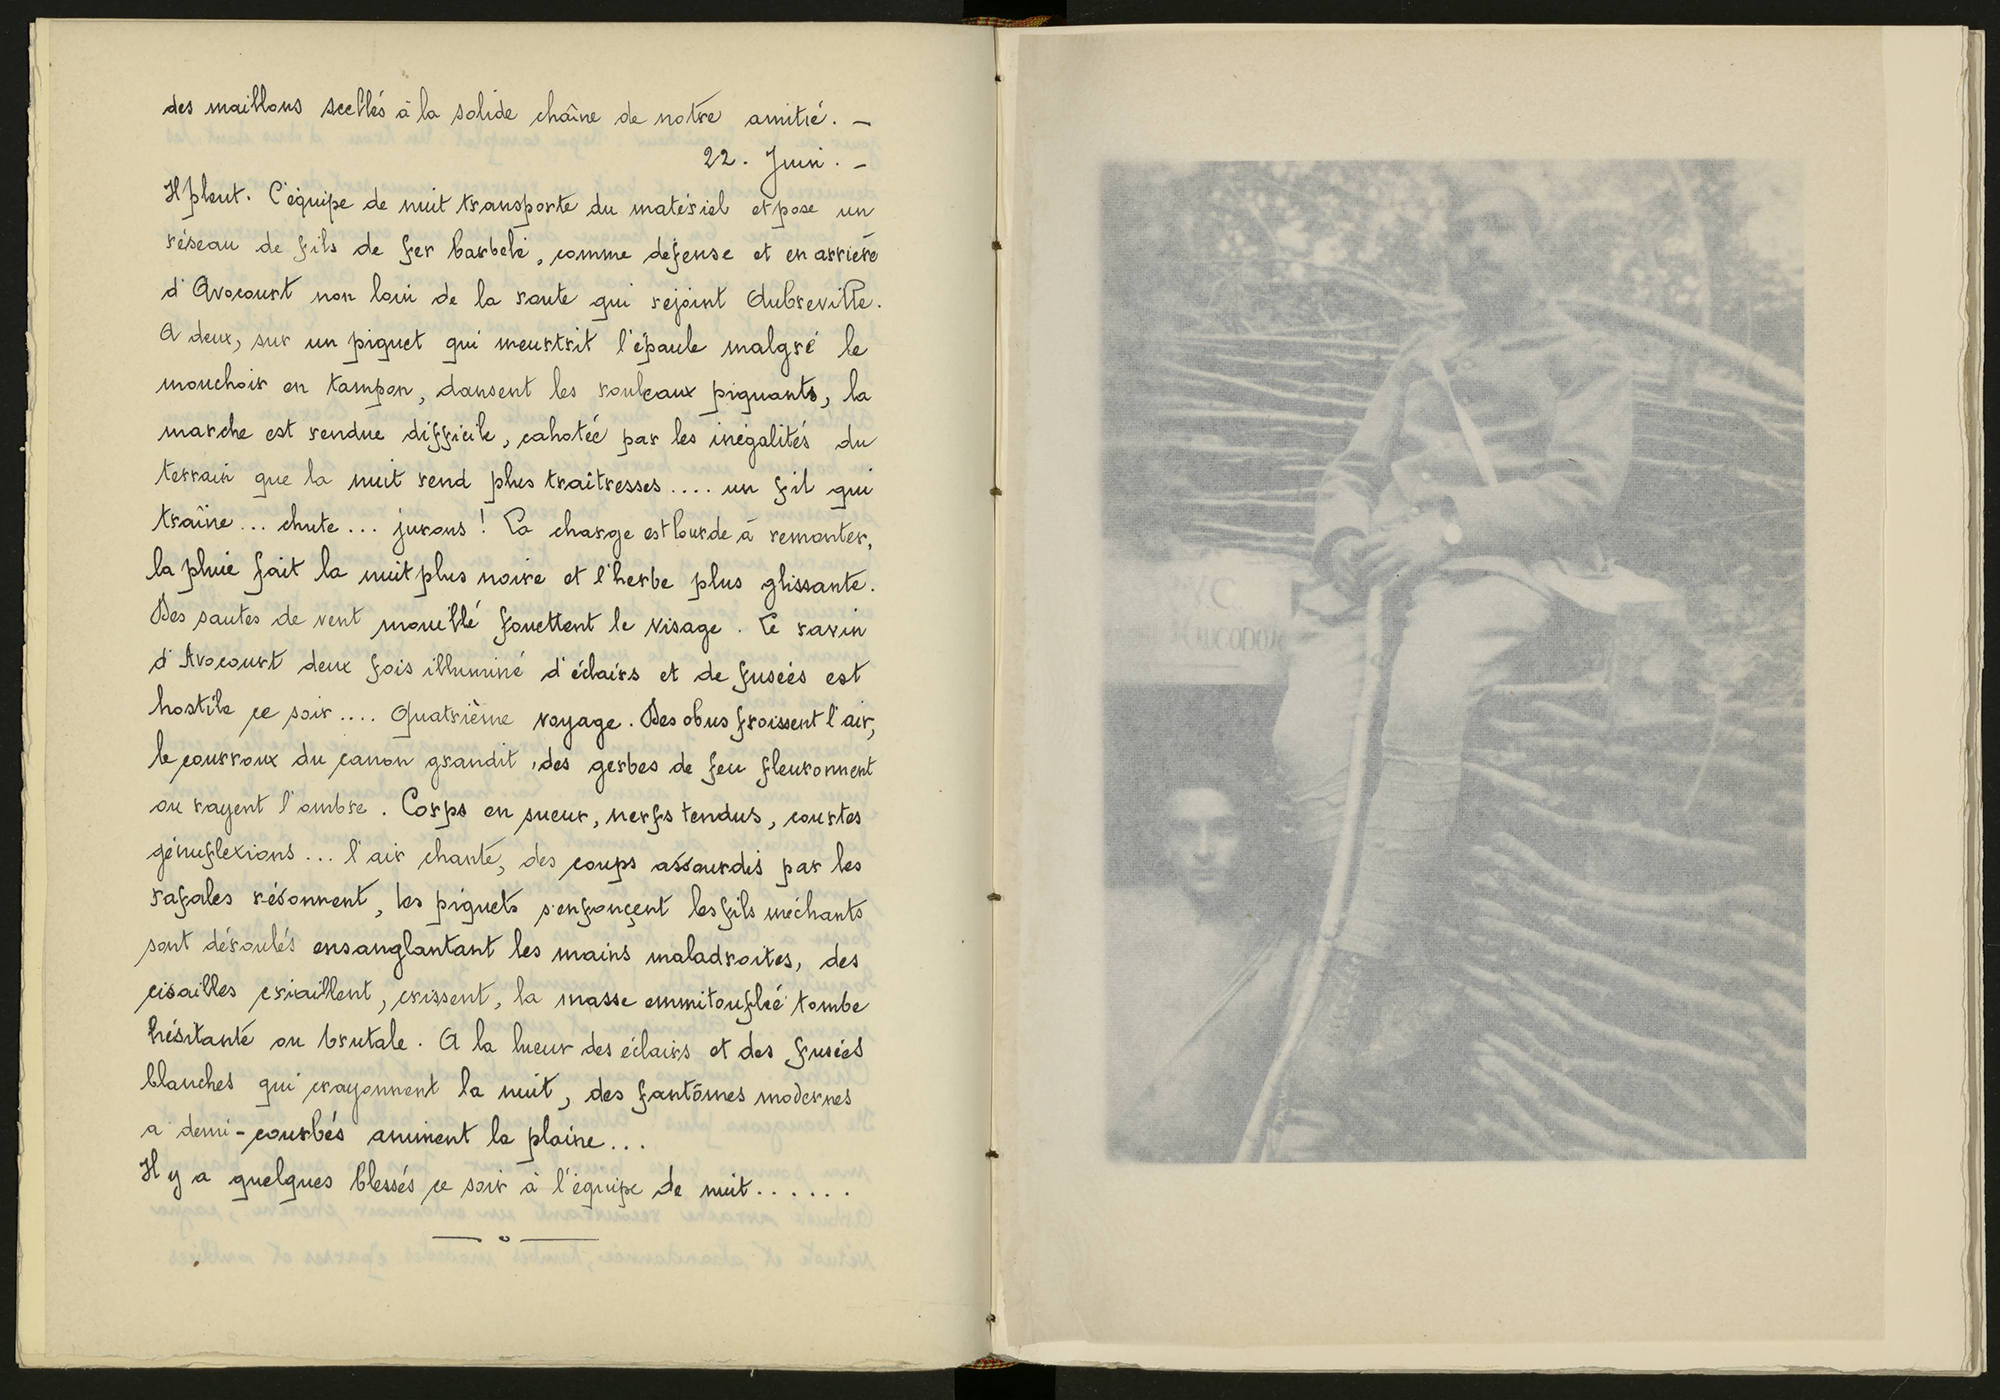 des maillons scellés à la solide chaîne de notre amitié. —
22. Juin. —
Il pleut. L'équipe de nuit transporte du matériel et pose un
réseau de fils de fer barbelé, comme défense et en arrière
d'Avocourt non loin de la route qui rejoint Aubreville.
A deux, sur un piquet qui meurtrit l'épaule malgré le
mouchoir en tampon, dansent les rouleaux piquants, la
marche est rendue difficile, cahotée par les inégalités du
terrain que la nuit rend plus traîtresses.... un fil qui
traîne... chute... jurons! La charge est lourde à remonter,
la pluie fait la nuit plus noire et l'herbe plus glissante.
Des sautes de vent mouillé fouettent le visage. Le ravin
d'Avocourt deux fois illuminé d'éclairs et de fusées est
hostile ce soir.... Quatrième voyage. Des obus froissent l'air,
le courroux du canon grandit, des gerbes de feu fleuronnent
ou rayent l'ombre. Corps en sueur, nerfs tendus, courtes
génuflexions... l'air chante, des coups assourdis par les
rafales résonnent, les piquets s'enfonçent les fils méchants
sont déroulés ensanglantant les mains maladroites, des
cisailles criaillent, crissent, la masse emmitouflée tombe
hésitante ou brutale. A la lueur des éclairs et des fusées
blanches qui crayonnent la nuit, des fantômes modernes
a demi-courbés animent la plaine...
Il y a quelques blessés ce soir à l'équipe de nuit......